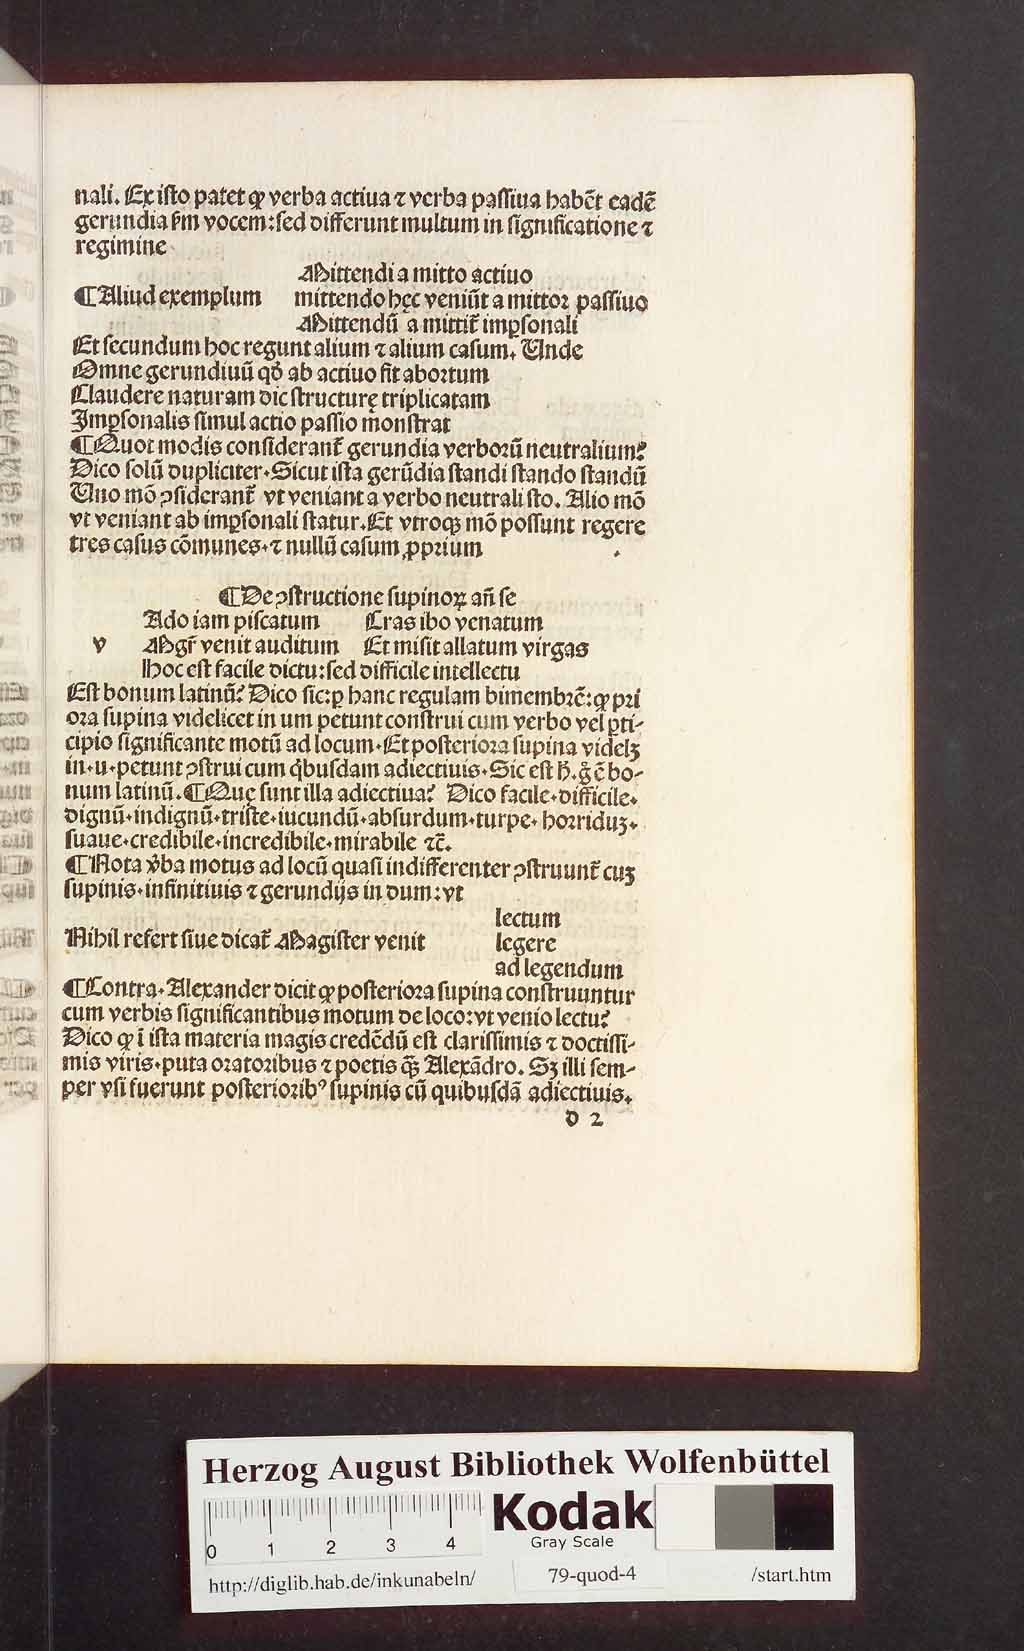 nali. Ex isto patet ꝙ verba actiua ⁊ verba passiua habēt eadē
gerundia s̄m vocem: sed differunt multum in significatione ⁊
regimine
Mittendi a mitto actiuo
¶Aliud exemplum mittendo hęc veniūt a mittor passiuo
Mittendū a mittit̄ imꝑsonali
Et secundum hoc regunt alium ⁊ alium casum. Unde
Omne gerundiuū qd̄ ab actiuo fit abortum
Claudere naturam dic structurę triplicatam
Imꝑsonalis simul actio passio monstrat
¶Quot modis considerant̄ gerundia verborū neutralium?
Dico solū dupliciter. Sicut ista gerūdia standi stando standū
Uno mō ꝯsiderant̄ vt veniant a verbo neutrali sto. Alio mō
vt veniant ab imꝑsonali statur. Et vtroqꝫ mō possunt regere
tres casus cōmunes. ⁊ nullū casum ꝓprium
¶De ꝯstructione supinoꝝ an̄ se
Ado iam piscatum Cras ibo venatum
v Mgr̄ venit auditum Et misit allatum virgas
Hoc est facile dictu: sed difficile intellectu
Est bonum latinū? Dico sic: ꝑ hanc regulam bimembrē: ꝙ pri
ora supina videlicet in um petunt construi cum verbo vel ꝑti-
cipio significante motū ad locum. Et posteriora supina videlꝫ
in. u. petunt ꝯstrui cum q̇busdam adiectiuis. Sic est h̄. g̊ ē bo-
num latinū. ¶Quę sunt illa adiectiua? Dico facile. difficile.
dignū. indignū. triste. iucundū. absurdum. turpe. horriduꝫ.
suaue. credibile. incredibile. mirabile ⁊c̄.
¶Nota v̓ba motus ad locū quasi indifferenter ꝯstruunt̄ cuꝫ
supinis. infinitiuis ⁊ gerundijs in dum: vt
lectum
Nihil refert siue dicat̄ Magister venit legere
ad legendum
¶Contra. Alexander dicit ꝙ posteriora supina construuntur
cum verbis significantibus motum de loco: vt venio lectu?
Dico ꝙ ī ista materia magis credēdū est clarissimis ⁊ doctissi-
mis viris. puta oratoribus ⁊ poetis qꝫ̄ Alexādro. Sꝫ illi sem-
per vsi fuerunt posteriorib⁹ supinis cū quibusdā adiectiuis.
d 2
Herzog August Bibliothek Wolfenbüttel
0 1 2 3 4
Kodak
Gray Scale
http://diglib.hab.de/inkunabeln/ 79-quod-4 /start.htm